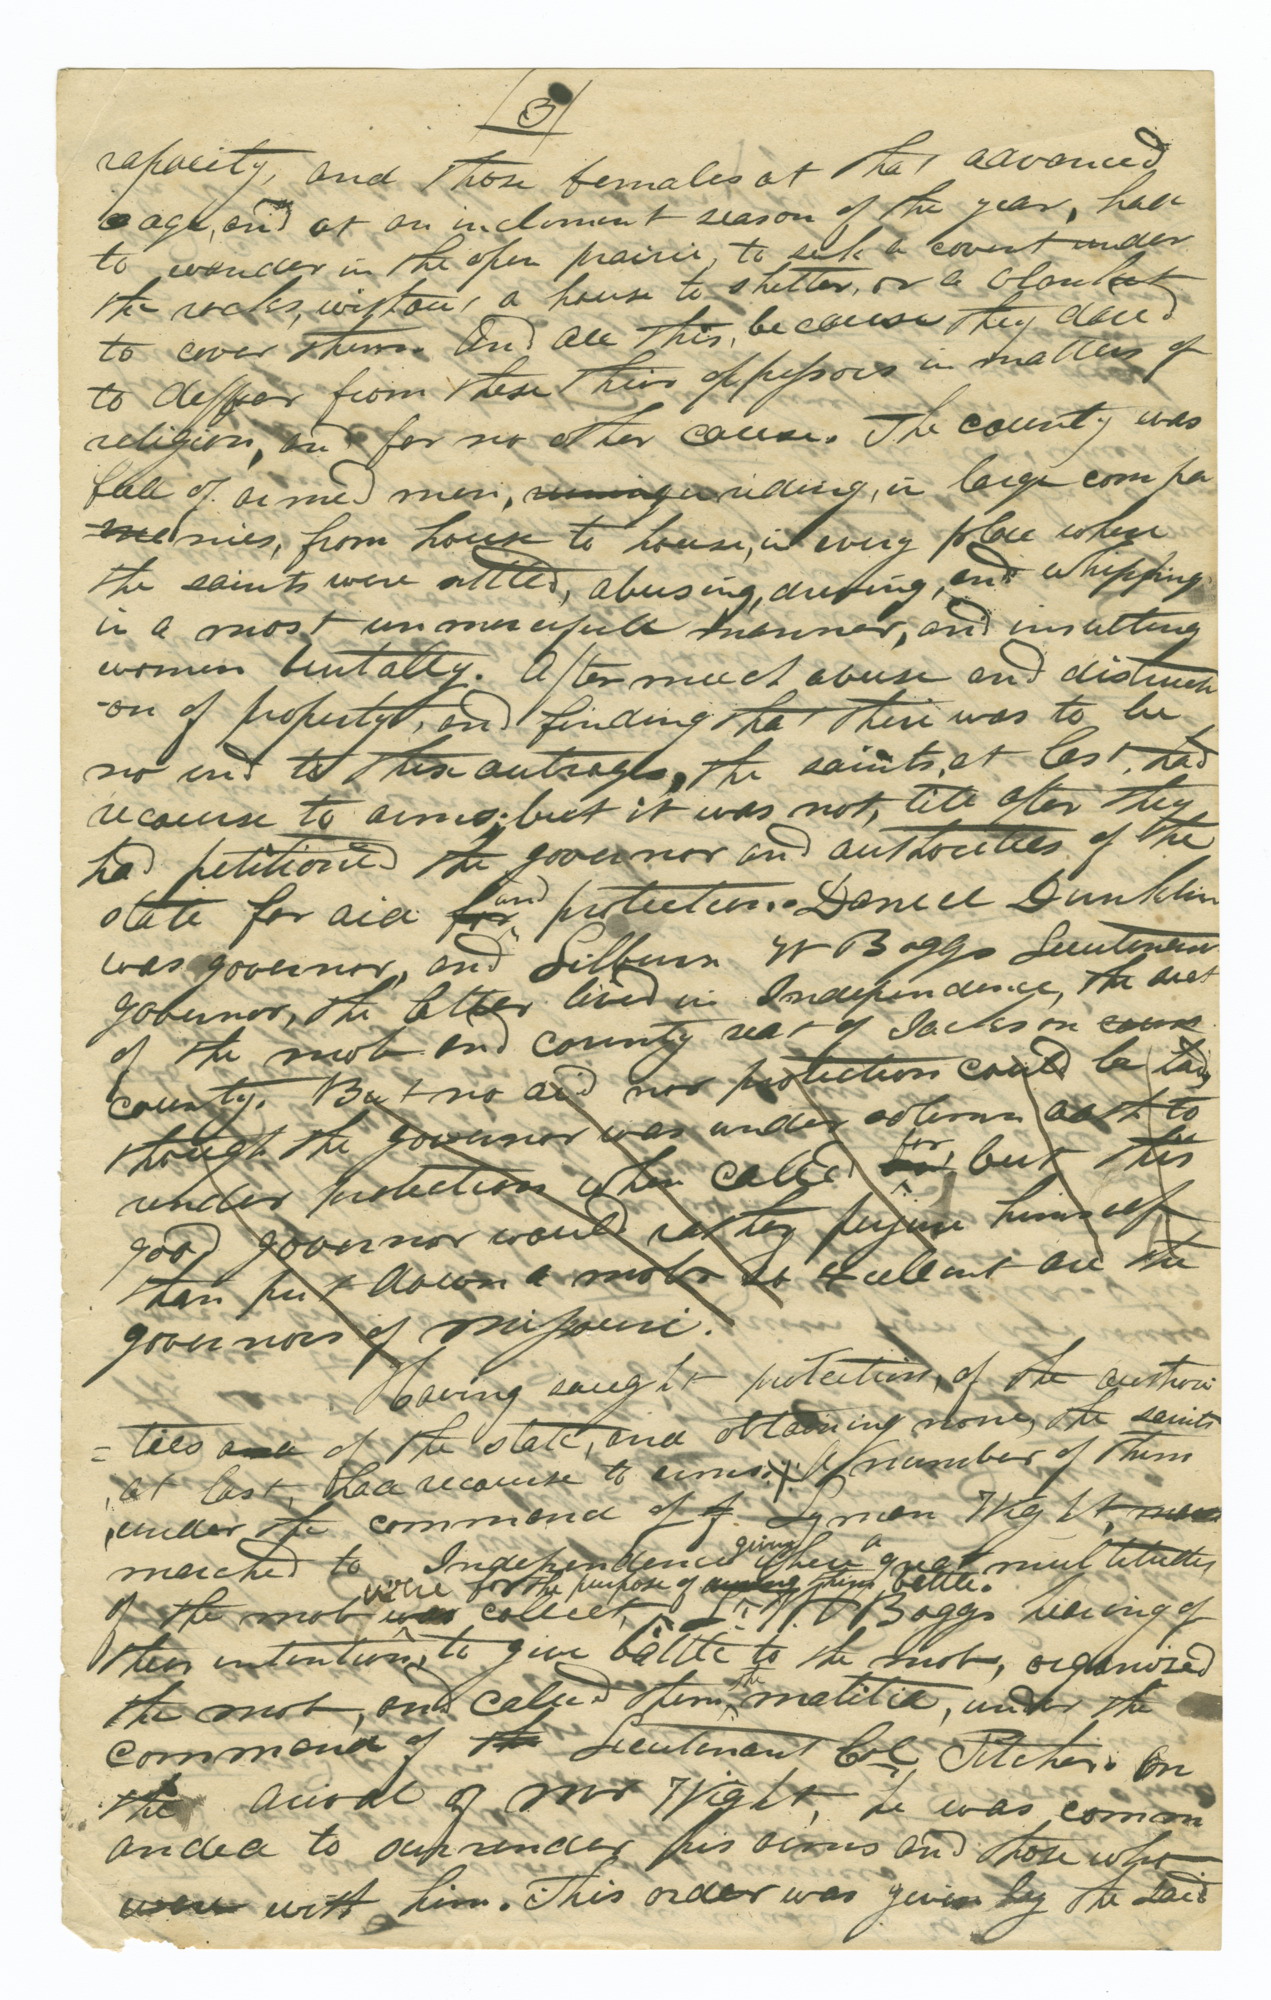 (3)
rapacity, and those females at that advanced
age, and at an inclement season of the year, had
to wander in the open prairie, to seek a covert under
the rocks, without a house to shelter, or a blanket
to cover them. And all this, because they dared
to deffer from these their oppressors in matters of
religion, and for no other cause. The county was
full of armed men, runing riding, in large compa
nies, from house to house, in every place where
the saints were settled, abusing, driving, and whipping
in a most unmercifull manner, and insulting
women brutally. After much abuse and distruct
-on of property, and finding that there was to be
no end to these outrages, the saints, at last, had
recourse to arms; but it was not, till after they
had petitioned the governor and authorities of the
state for aid for and protection. Daniel Dunklin
was governor, and Lilburn W Boggs Lieutenant
governor, the latter lived in Independence, the seat
of the mob and county seat of Jackson coun
county. But no aid nor protection could be had
though the governor was under solemn oath to
render protection when called for, but this
good governor would rathey perjure himself
than put down a mob so excelent are the
governors of Missouri.
Having saught protection, of the authori
=ties and of the state, and obtaining none, the saints
at last, had recourse to arms. A number of them
under the command of Lyman Wight,
marched to Independence where a great multitudes
of the mob was were collect, for the purpose of giving them battle. L. W Boggs hearing of
their intention, to give battle to the mob, organised
the mob, and called them, the malitia, under the
command of the Lieutenant Col Pitcher. On
the arival of Mr Wight, he was comm
anded to surrender his arms and those who
were with him. This order was given by the said